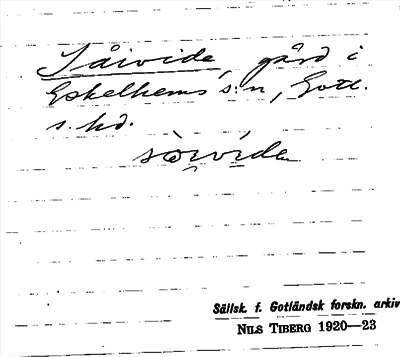 Såivide, gård i
Eskelhems s:n, Gotl.
s. hd.
sȯi̯vide
Sällsk. f. Gotländsk forskn. arkiv
NILS TIBERG 1920—23